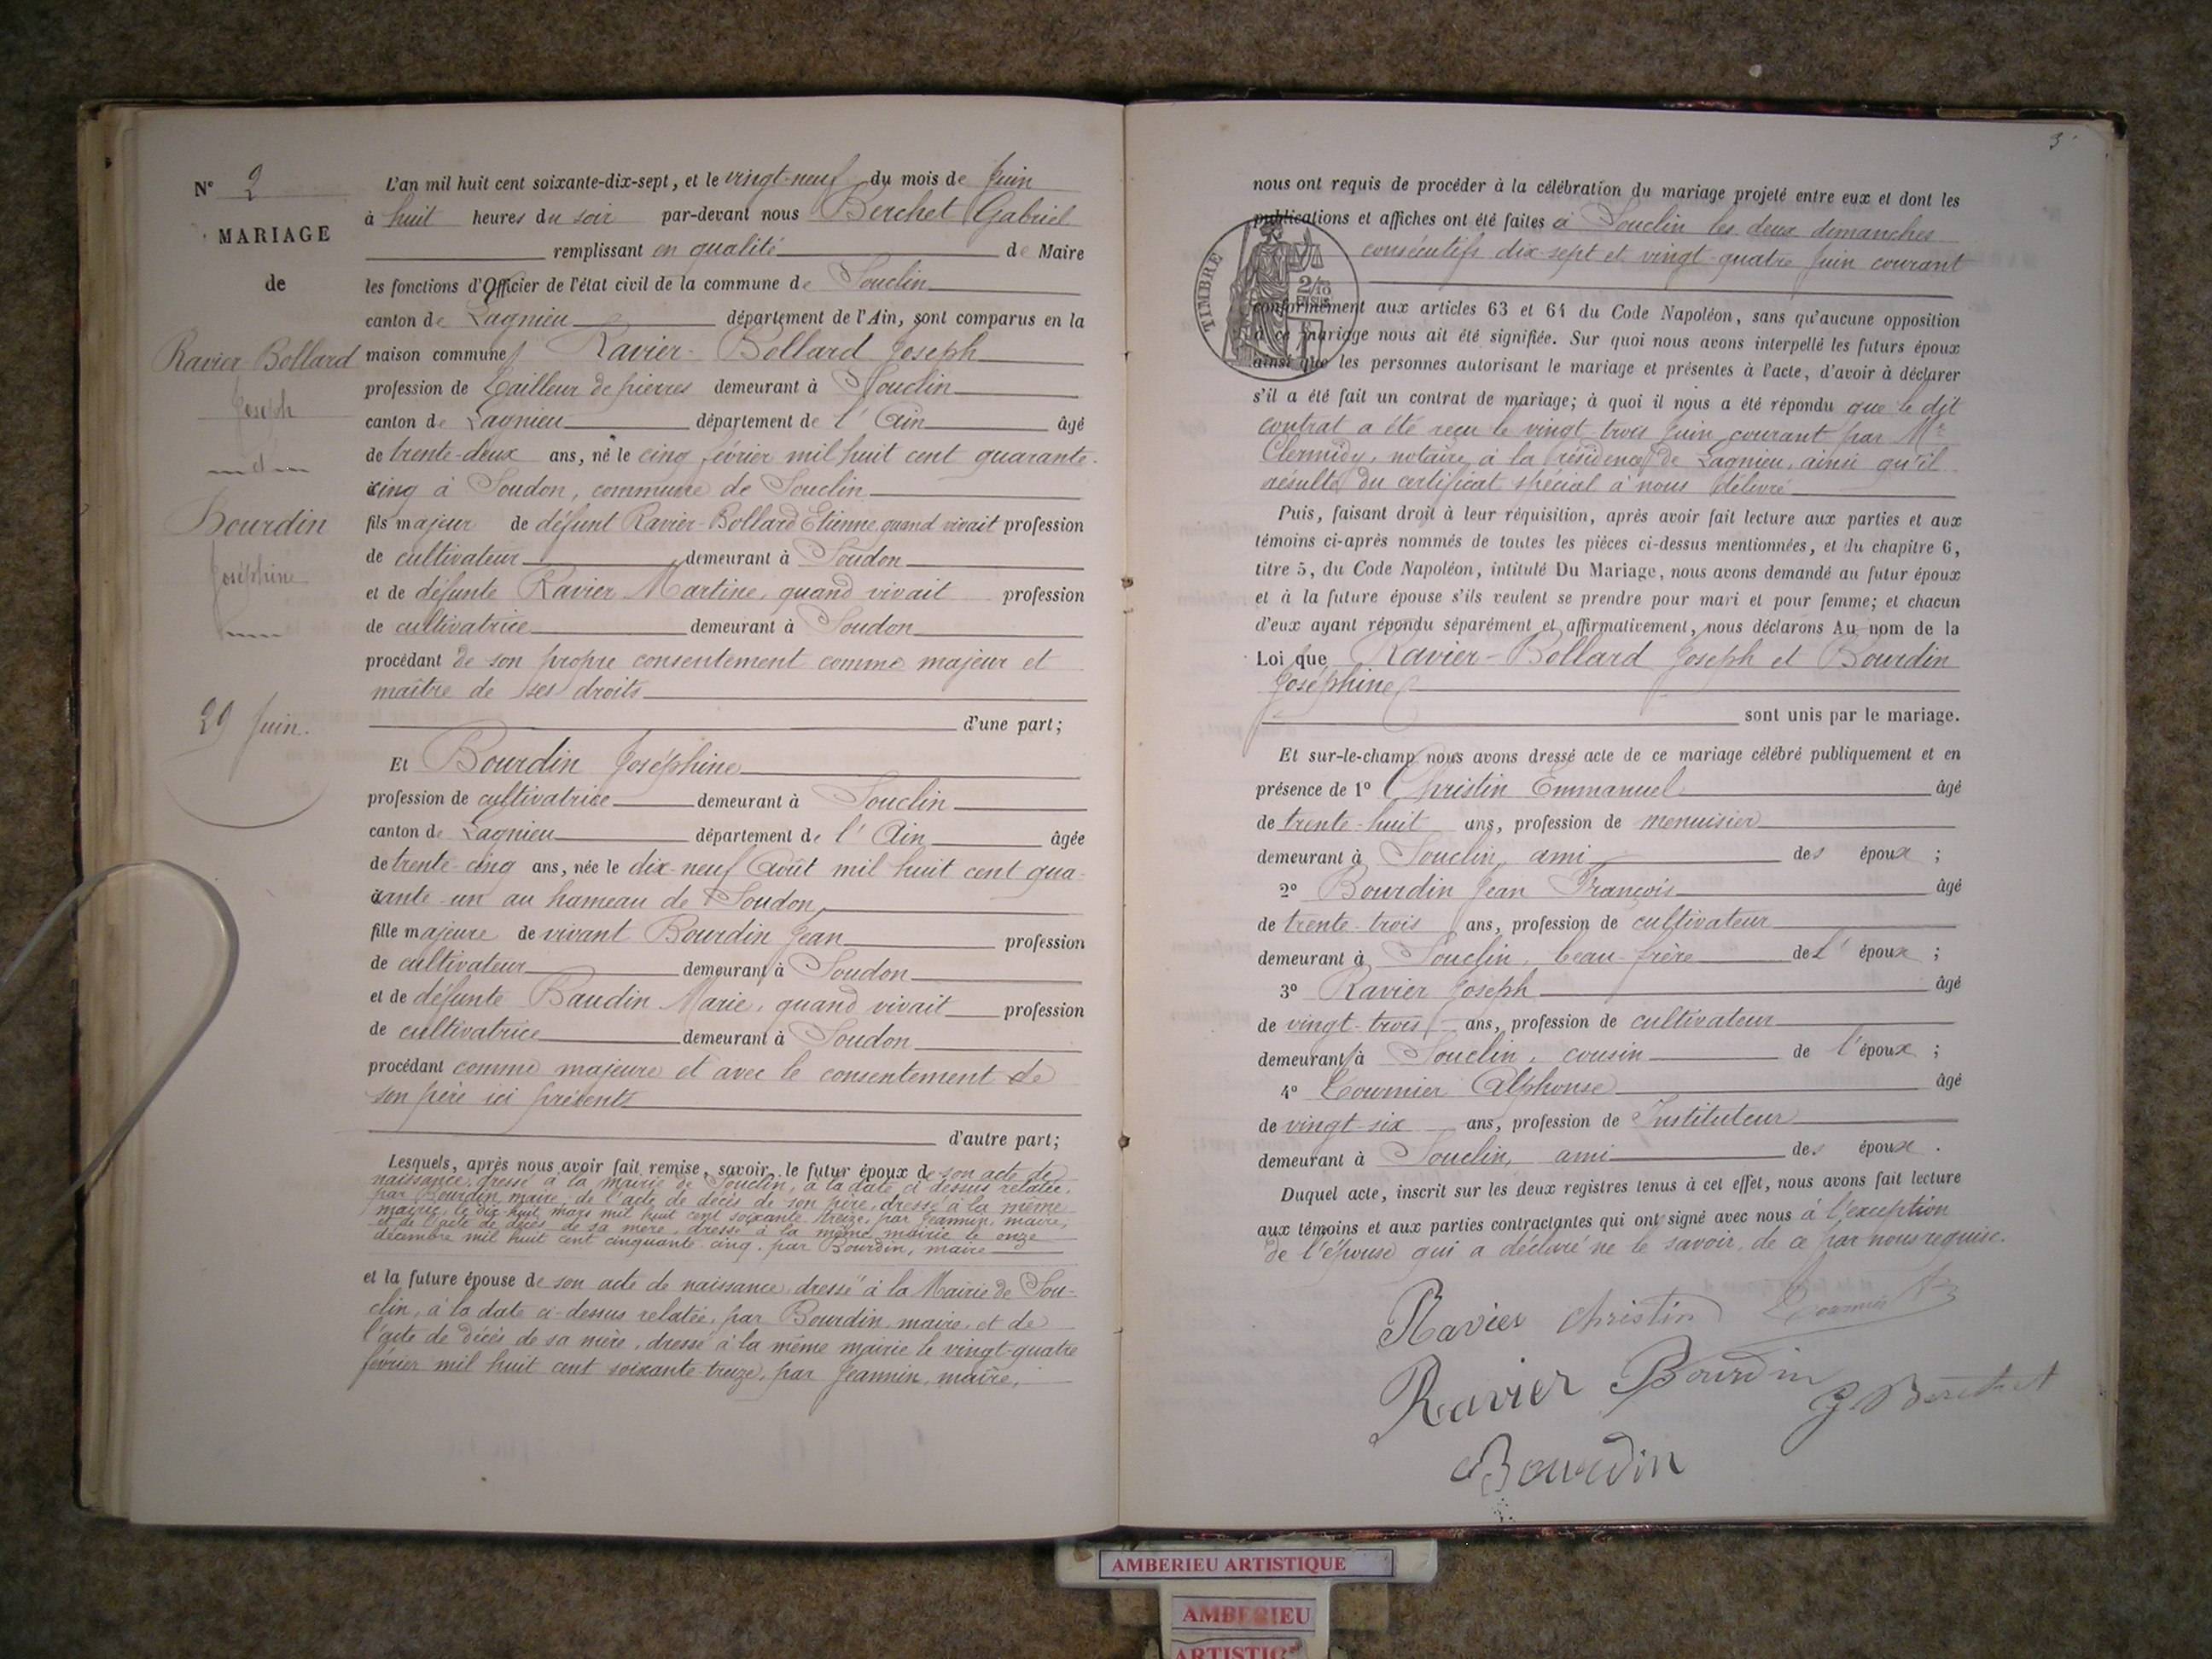 N° 2
MARIAGE
de
Ravier-Bollard
Joseph
et
Bourdin
Joséphine
29 Juin.
L'an mil huit cent soixante-dix-sept, et le vingt-neuf du mois de Juin
à huit heures du soir par-devant nous Berchet Gabriel
remplissant en qualité de Maire
les fonctions d'Officier de l'état civil de la commune de Souclin
canton de Lagnieu département de l'Ain, sont comparus en la
maison commune Ravier-Bollard Joseph
profession de Tailleur de pierres demeurant à Souclin
canton de Lagnieu département de l'Ain âgé
de trente-deux ans, né le cinq février mil huit cent quarante-
cinq à Soudon, commune de Souclin
fils majeur de défunt Ravier-Bollard Etienne, quand vivait profession
de cultivateur demeurant à Soudon
et de défunte Ravier Martine, quand vivait profession
de cultivatrice demeurant à Soudon
procédant de son propre consentement comme majeur et
maître de ses droits
d'une part;
Et Bourdin Joséphine
profession de cultivatrice demeurant à Souclin
canton de Lagnieu département de l'Ain âgée
de trente-cinq ans, née le dix-neuf Août mil huit cent qua-
rante-un au hameau de Soudon,
fille majeure de vivant Bourdin Jean profession
de cultivateur demeurant à Soudon
et de défunte Baudin Marie, quand vivait profession
de cultivatrice demeurant à Soudon
procédant comme majeure et avec le consentement de
son père ici présent
d'autre part;
Lesquels, après nous avoir fait remise, savoir, le futur époux de son acte de
naissance, dressé à la mairie de Souclin, à la date ci-dessus relatée,
par Bourdin, maire, de l'acte de décès de son père, dressé à la même
mairie, le dix-huit mars mil huit cent soixante-treize, par Jeannin, maire,
et de l'acte de décès de sa mère, dressé à la même mairie le onze
décembre mil huit cent cinquante-cinq, par Bourdin, maire
et la future épouse de son acte de naissance, dressé à la Mairie de Sou-
clin, à la date ci-dessus relatée, par Bourdin, maire, et de
l'acte de décès de sa mère, dressé à la même mairie le vingt-quatre
février mil huit cent soixante-treize, par Jeannin, maire,
3
nous ont requis de procéder à la célébration du mariage projeté entre eux et dont les
publications et affiches ont été faites à Souclin les deux dimanches
consécutifs dix-sept et vingt-quatre Juin courant
TIMBRE
2/10
EN SUS
conformément aux articles 63 et 64 du Code Napoléon, sans qu'aucune opposition
à ce mariage nous ait été signifiée. Sur quoi nous avons interpellé les futurs époux
ainsi que les personnes autorisant le mariage et présentes à l'acte, d'avoir à déclarer
s'il a été fait un contrat de mariage; à quoi il nous a été répondu que le dit
contrat a été reçu le vingt-trois Juin courant par Me
Clermidy, notaire à la résidence de Lagnieu, ainsi qu'il
résulte du certificat spécial à nous délivré
Puis, faisant droit à leur réquisition, après avoir fait lecture aux parties et aux
témoins ci-après nommés de toutes les pièces ci-dessus mentionnées, et du chapitre 6,
titre 5, du Code Napoléon, intitulé Du Mariage, nous avons demandé au futur époux
et à la future épouse s'ils veulent se prendre pour mari et pour femme; et chacun
d'eux ayant répondu séparément et affirmativement, nous déclarons Au nom de la
Loi que Ravier-Bollard Joseph et Bourdin
Joséphine
sont unis par le mariage.
Et sur-le-champ nous avons dressé acte de ce mariage célébré publiquement et en
présence de 1° Christin Emmanuel âgé
de trente-huit ans, profession de menuisier
demeurant à Souclin, ami des époux ;
2° Bourdin Jean François âgé
de trente-trois ans, profession de cultivateur
demeurant à Souclin, beau-frère de l'époux ;
3° Ravier Joseph âgé
de vingt-trois ans, profession de cultivateur
demeurant à Souclin, cousin de l'époux ;
4° Tournier Alphonse âgé
de vingt-six ans, profession de Instituteur
demeurant à Souclin, ami des époux .
Duquel acte, inscrit sur les deux registres tenus à cet effet, nous avons fait lecture
aux témoins et aux parties contractantes qui ont signé avec nous à l'exception
de l'épouse qui a déclaré ne le savoir, de ce par nous requise.
Ravier Christin Tournier
Ravier Bourdin G. Berchet
Bourdin
AMBERIEU ARTISTIQUE
AMBERIEU
ARTISTIQ